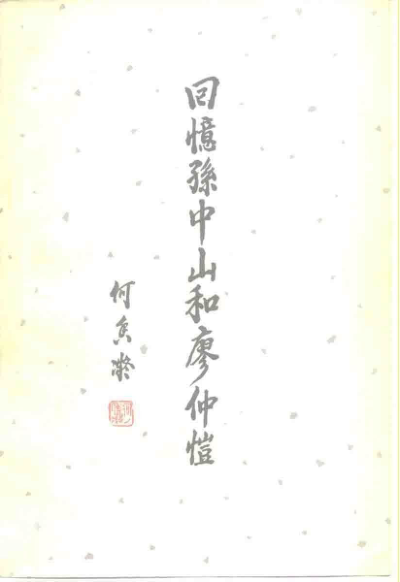 回憶孫中山和廖仲愷
何香凝